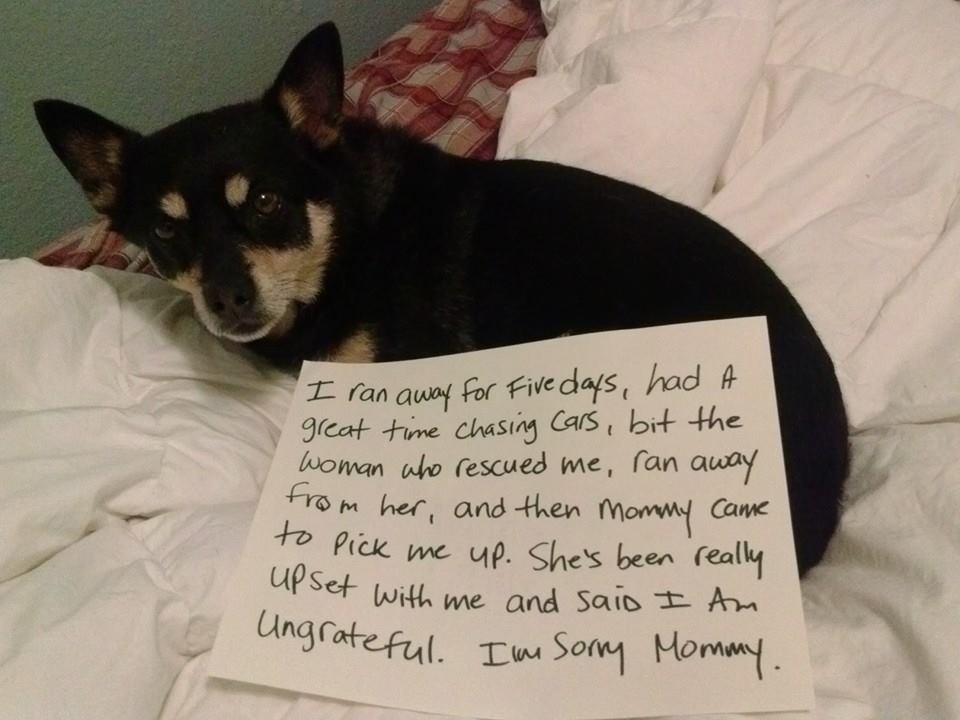 I ran away for Five days, had A
great time chasing Cars, bit the
woman who rescued me, ran away
from her, and then Mommy came
to pick me up. She's been really
upset with me and said I Am
Ungrateful. I'm Sorry Mommy.